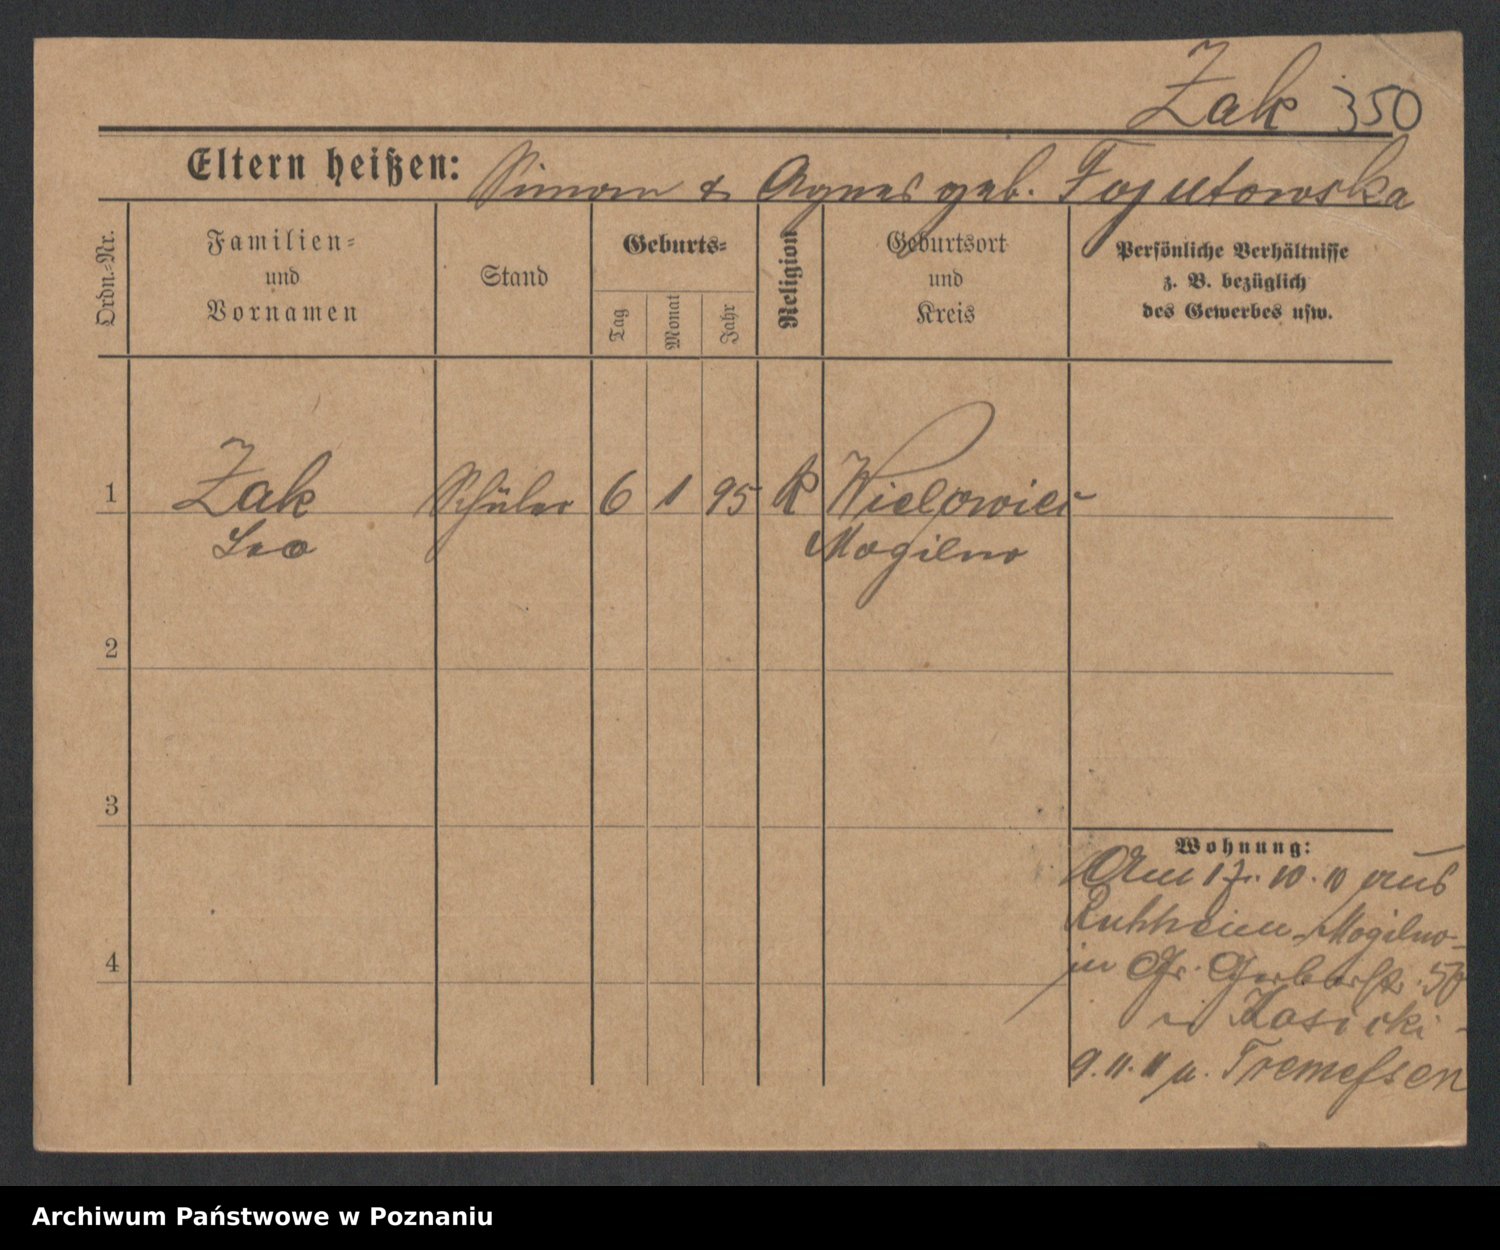 Zak 350
Eltern heißen: Simon & Agnes geb. Fogutowska
Ordn.-Nr.
Familien-
und
Vornamen
Stand
Geburts-
Tag
Monat
Jahr
Religion
Geburtsort
und
Kreis
Persönliche Verhältnisse
z. B. bezüglich
des Gewerbes usw.
1 Zak Schüler 6 1 95 K Wielowies
Leo Mogilno
2
3
4
Wohnung:
Am 17. 10. 10 aus
Ruhheim-Mogilno-
in Gr. Gerberstr. 50
Kosicki
9. 11. 11 n. Tremessen
Archiwum Państwowe w Poznaniu